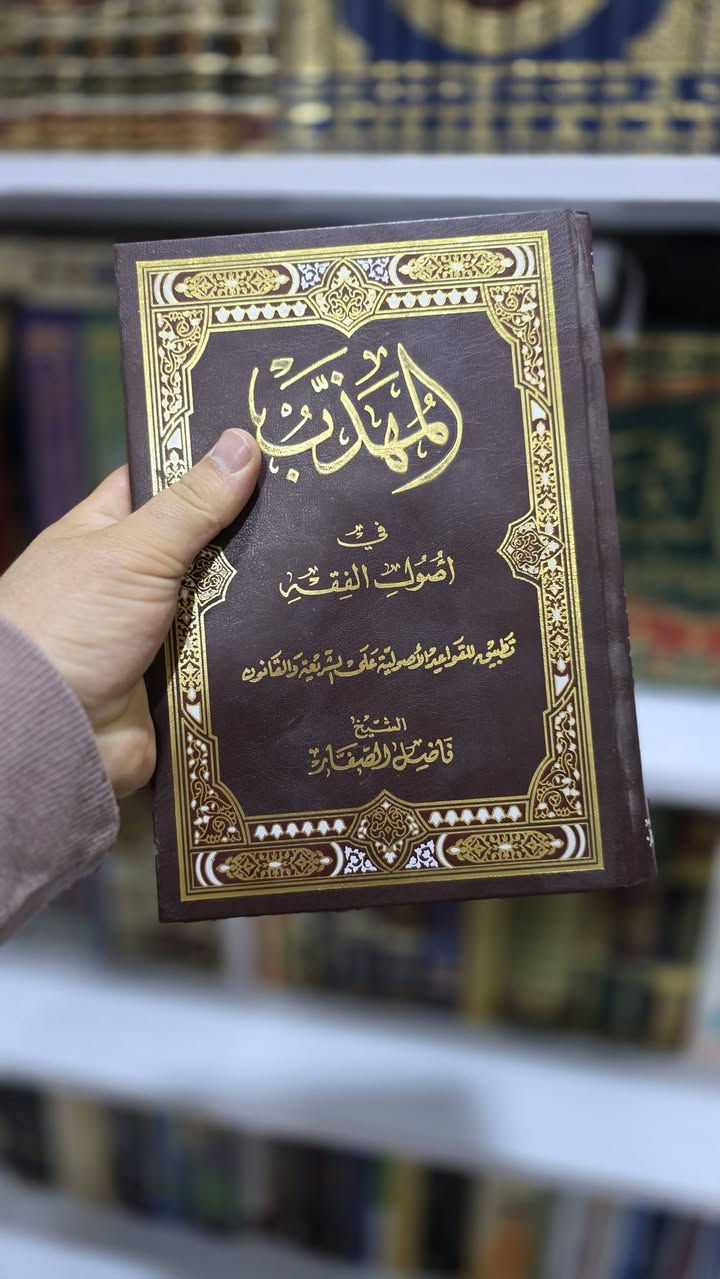 المُهَذَّبُ
في
أُصُولِ الفِقهِ
تَطبيقٌ للقَواعِدِ الأصوليّة عَلى الشّريعَةِ وَالقانون
الشّيخ
فَاضِل الصّفّار